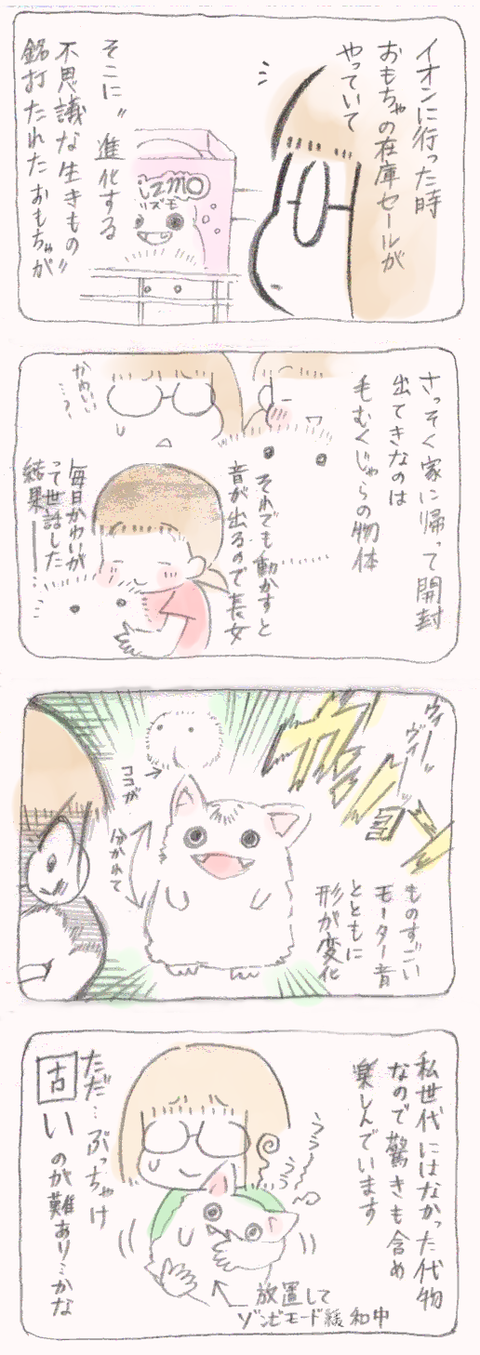 イオンに行った時
おもちゃの在庫セールが
やっていて
そこに〝進化する
不思議な生きもの〟
銘打たれたおもちゃが
IZMO
ズモ
さっそく家に帰って開封
出てきなのは
毛むくじゃらの物体
かわいい
…?
それでも動かすと
音が出るので長女
毎日かわいが
って世話した
結果――…
ヴィーッ
ヴィー
ココが
分かれて
ものすごい
モーター音
とともに
形が変化
私世代にはなかった代物
なので驚きも含め
楽しんでいます
ただ…ぶっちゃけ
古い のが難あり…かな
放置して
ゾンビモード緩和中